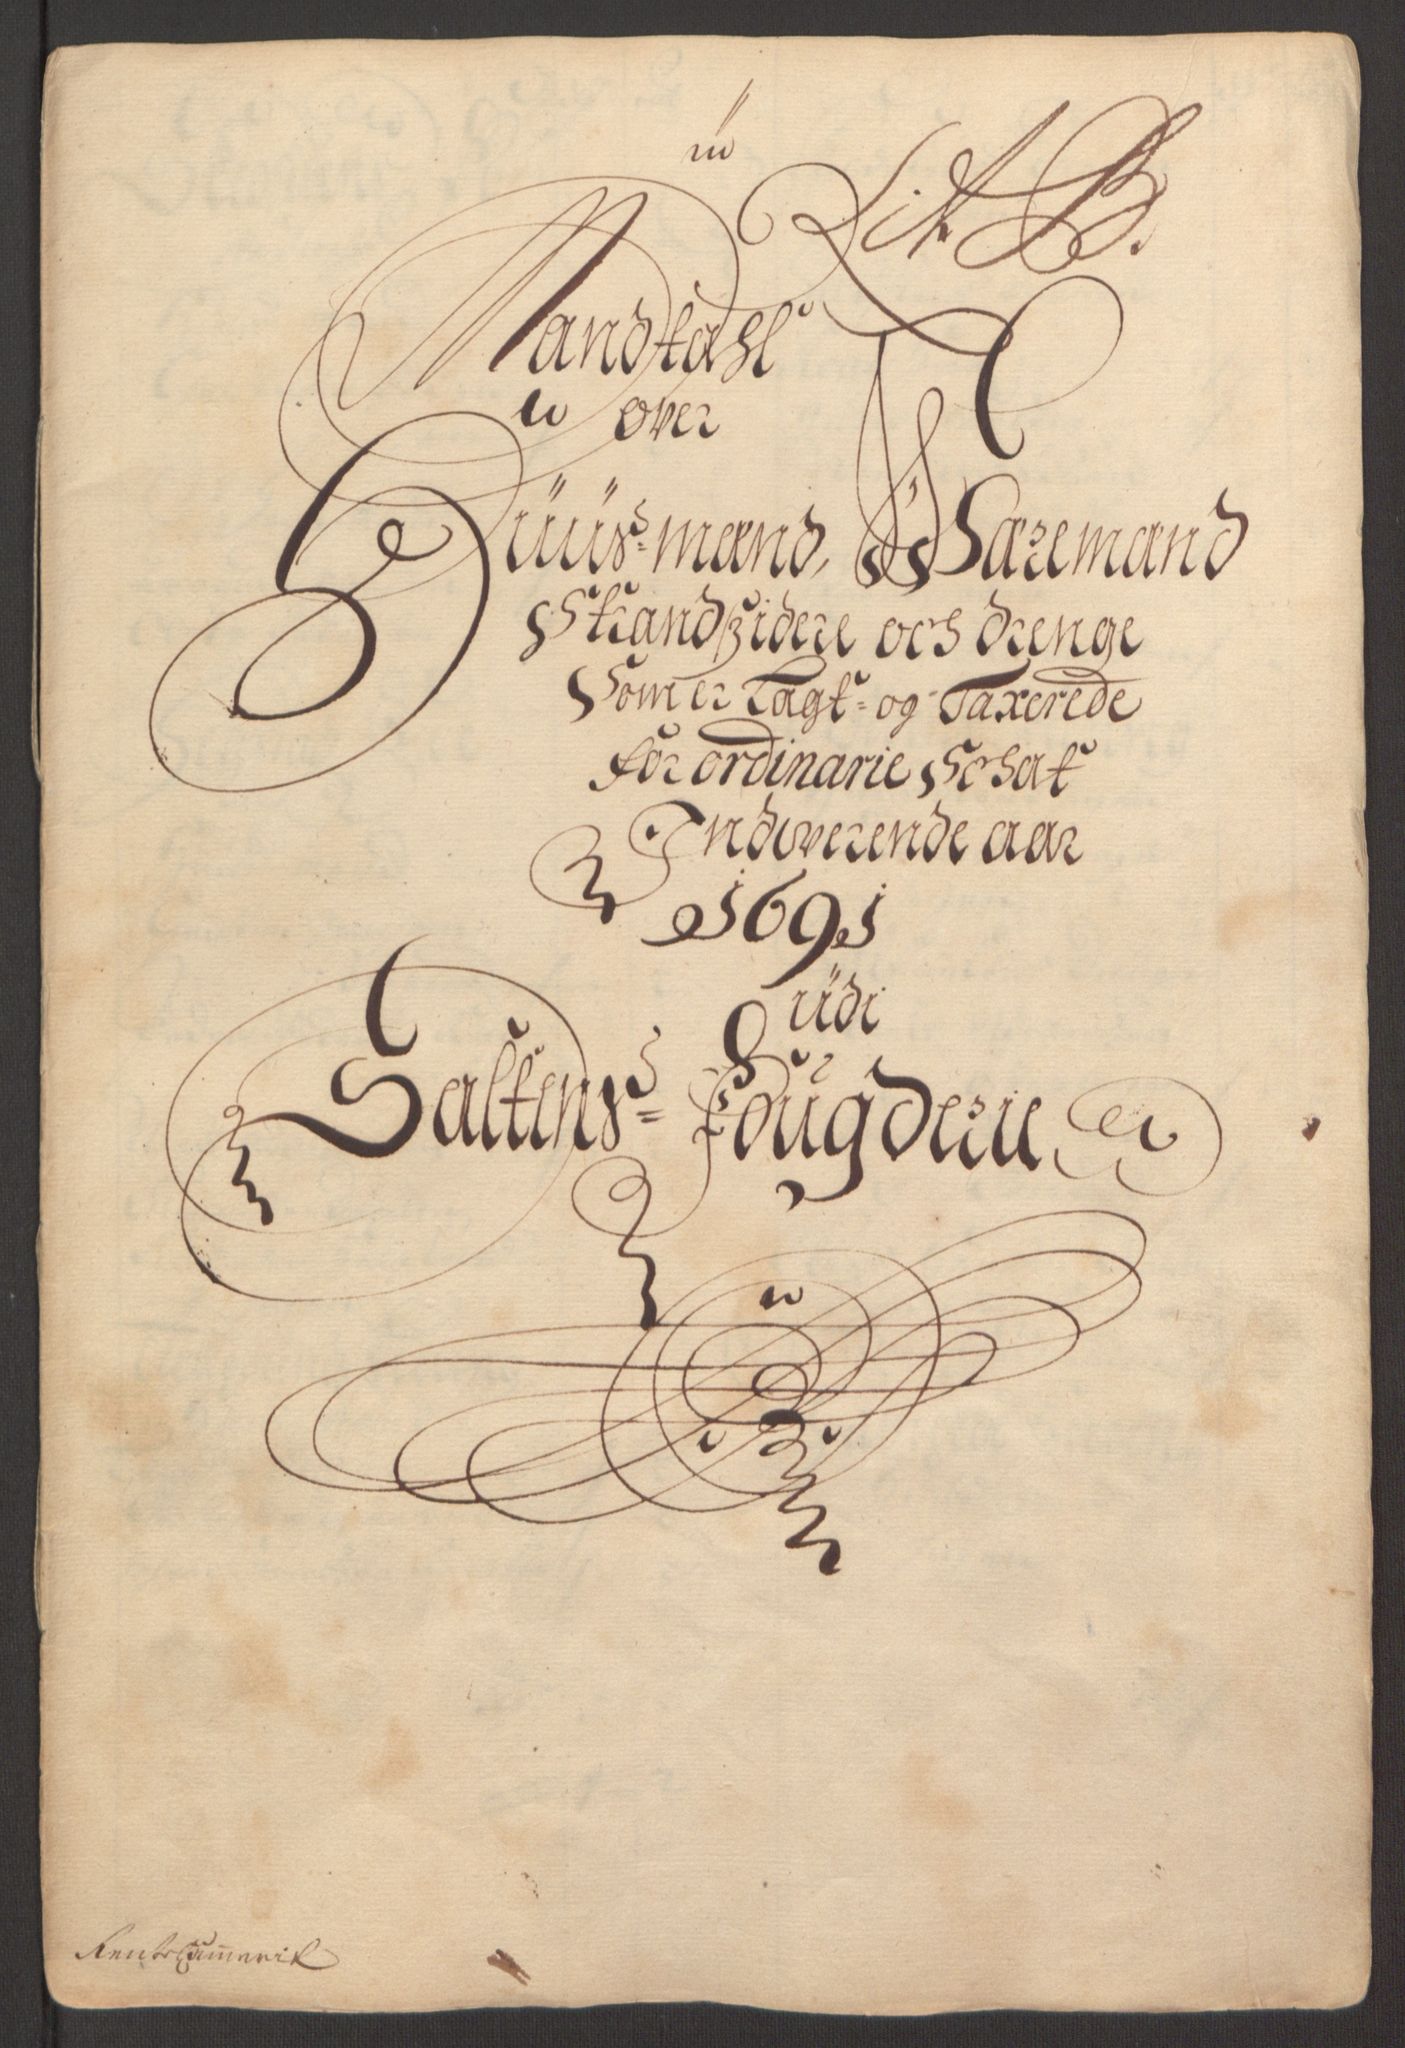 Lit B.
Mandtahl
over
Huus-mænd, Haremænd
Strandsidere och drenge
Som er Lagt- og Taxerede
for ordinarie Schat
Indwerende aar
1691
udi
Saltens- Fougderie
Rentekammerit